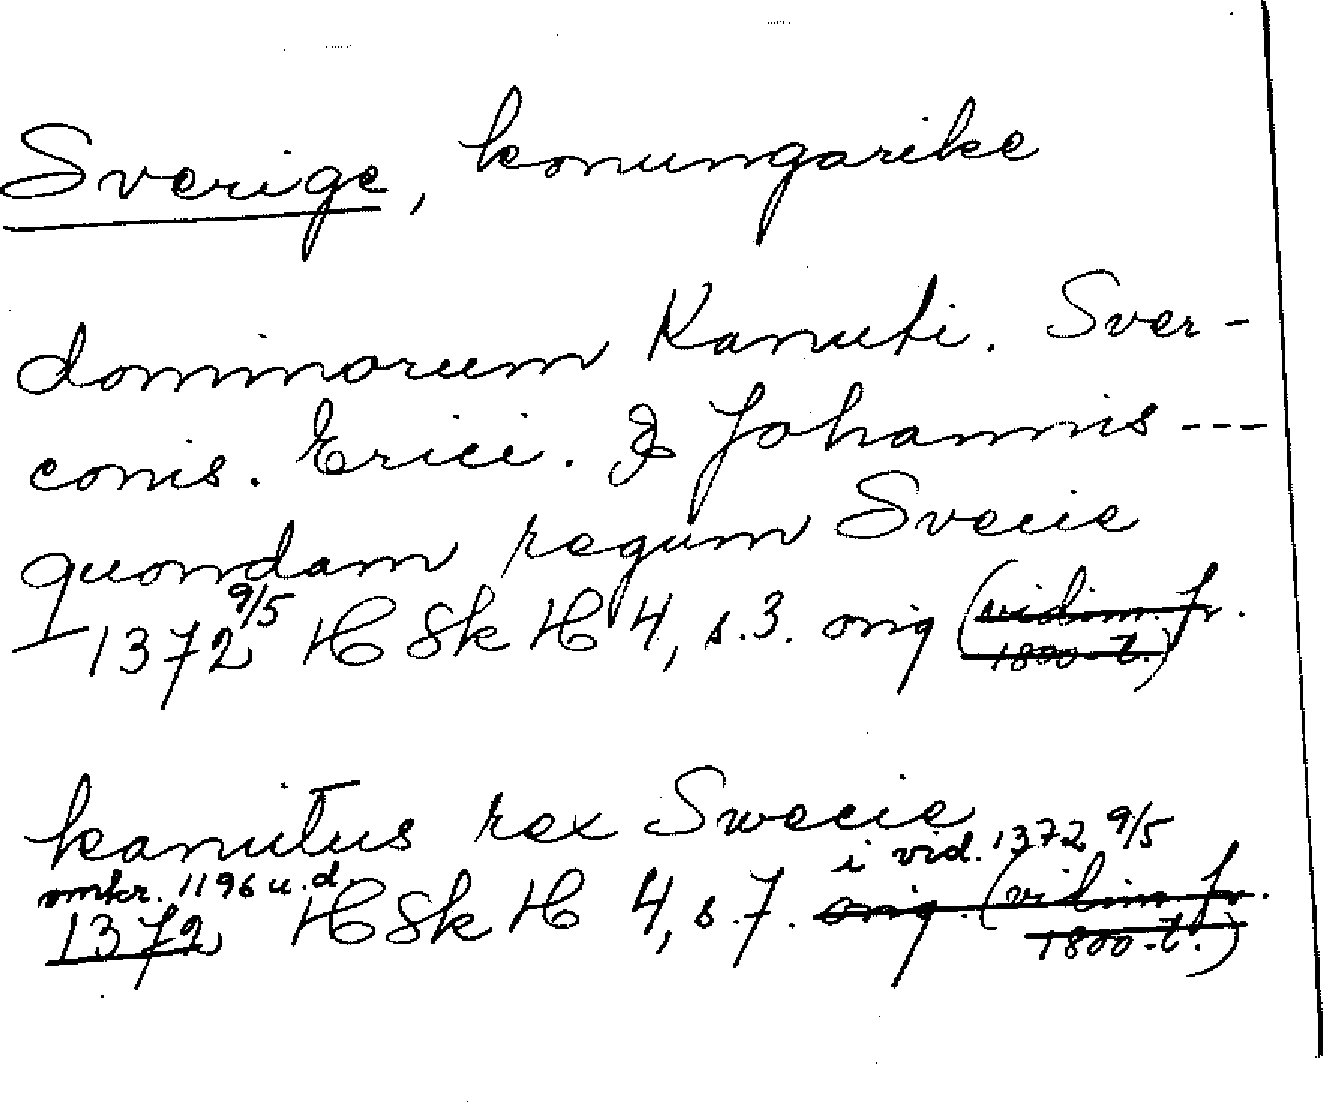 Sverige, konungarike
dominorum Kanuti. Sver-
conis. Erici. & Johannis ---
quondam regum Svecie
1372 9/5 HSkH 4, s.3. orig (vidim. fr.
1800-t.)
kanutus rex Swecie
omkr. 1196 u.d. i vid. 1372 9/5
1372 HSkH 4, s.7. orig. (vidim. fr.
1800-t.)